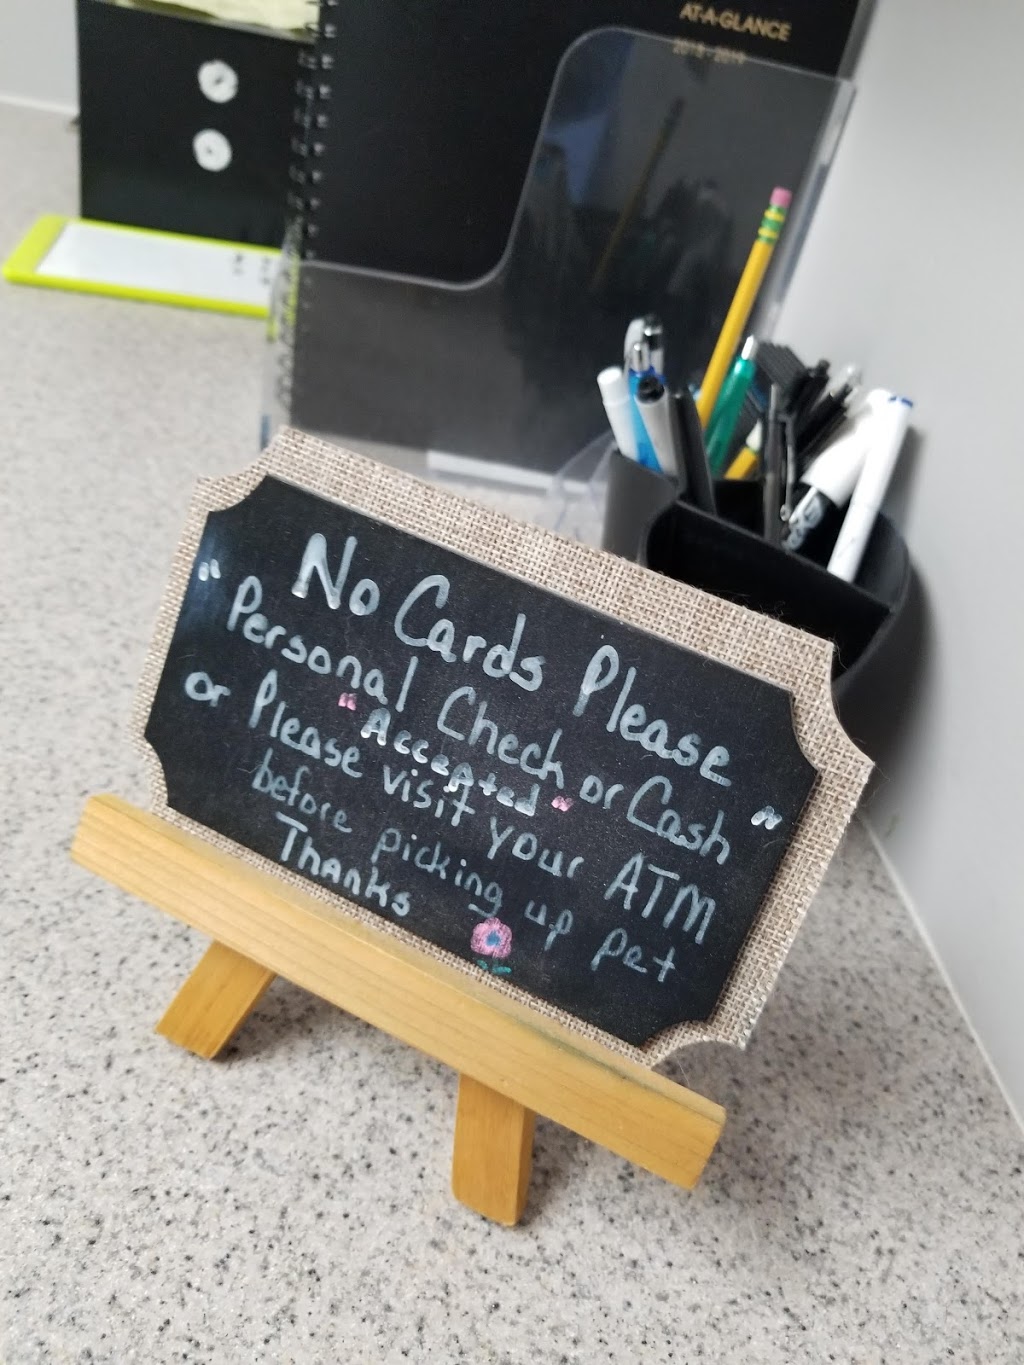 AT-A-GLANCE
2018-2019
No Cards Please
"Personal Check or Cash"
"Accepted"
or Please visit your ATM
before picking up pet
Thanks